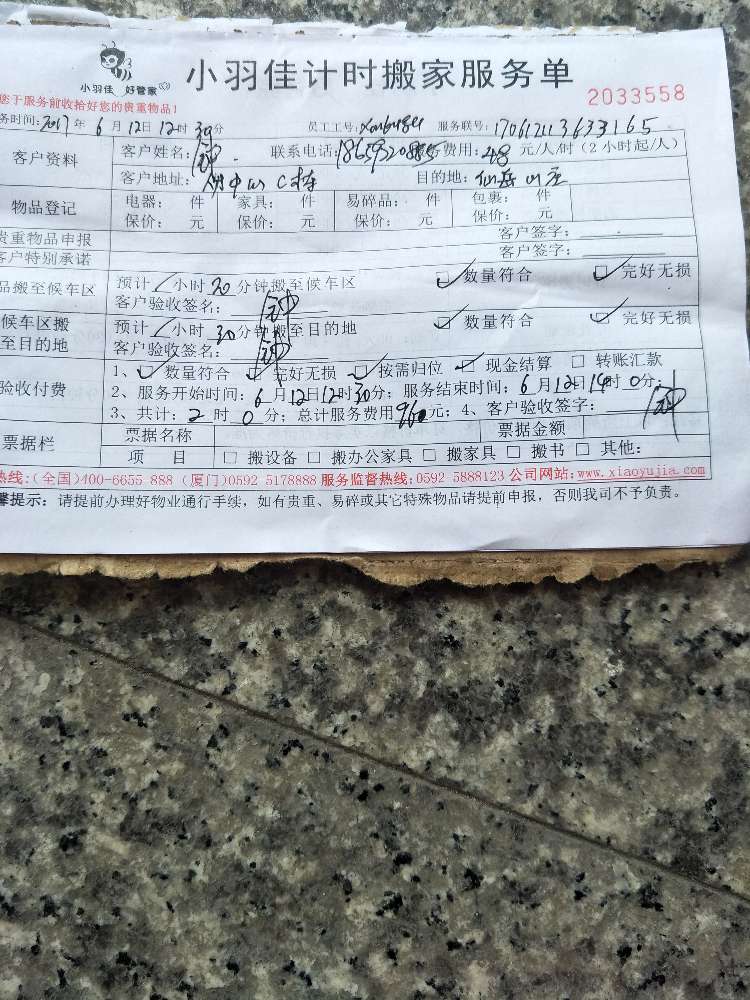 小羽佳 好管家
小羽佳计时搬家服务单
2033558
您于服务前收拾好您的贵重物品!
务时间:2017年6月12日12时30分 员工工号: 服务联号:17061211363 3165
客户资料
客户姓名: 联系电话:18659320885 服务费用:48元/人/时(2小时起/人)
客户地址: 目的地:仙岳山庄
物品登记
电器: 件 家具: 件 易碎品: 件 包裹: 件
保价: 元 保价: 元 保价: 元 保价: 元
贵重物品申报 客户签字:
客户特别承诺 客户签字:
品搬至候车区 预计/小时20分钟搬至候车区 数量符合 完好无损
客户验收签名:钟
候车区搬至目的地 预计/小时30分钟搬至目的地 数量符合 完好无损
客户验收签名:钟
验收付费
1、数量符合 完好无损 按需归位 现金结算 转账汇款
2、服务开始时间:6月12日12时30分;服务结束时间:6月12日14时0分;
3、共计:2时0分;总计服务费用960元;4、客户验收签字:钟
票据栏
票据名称 票据金额
项 目 搬设备 搬办公家具 搬家具 搬书 其他:
热线:(全国)400-6655 888 (厦门)0592 5178888 服务监督热线:0592 5888123 公司网站:www.xiaoyujia.com
馨提示:请提前办理好物业通行手续,如有贵重、易碎或其它特殊物品请提前申报,否则我司不予负责。